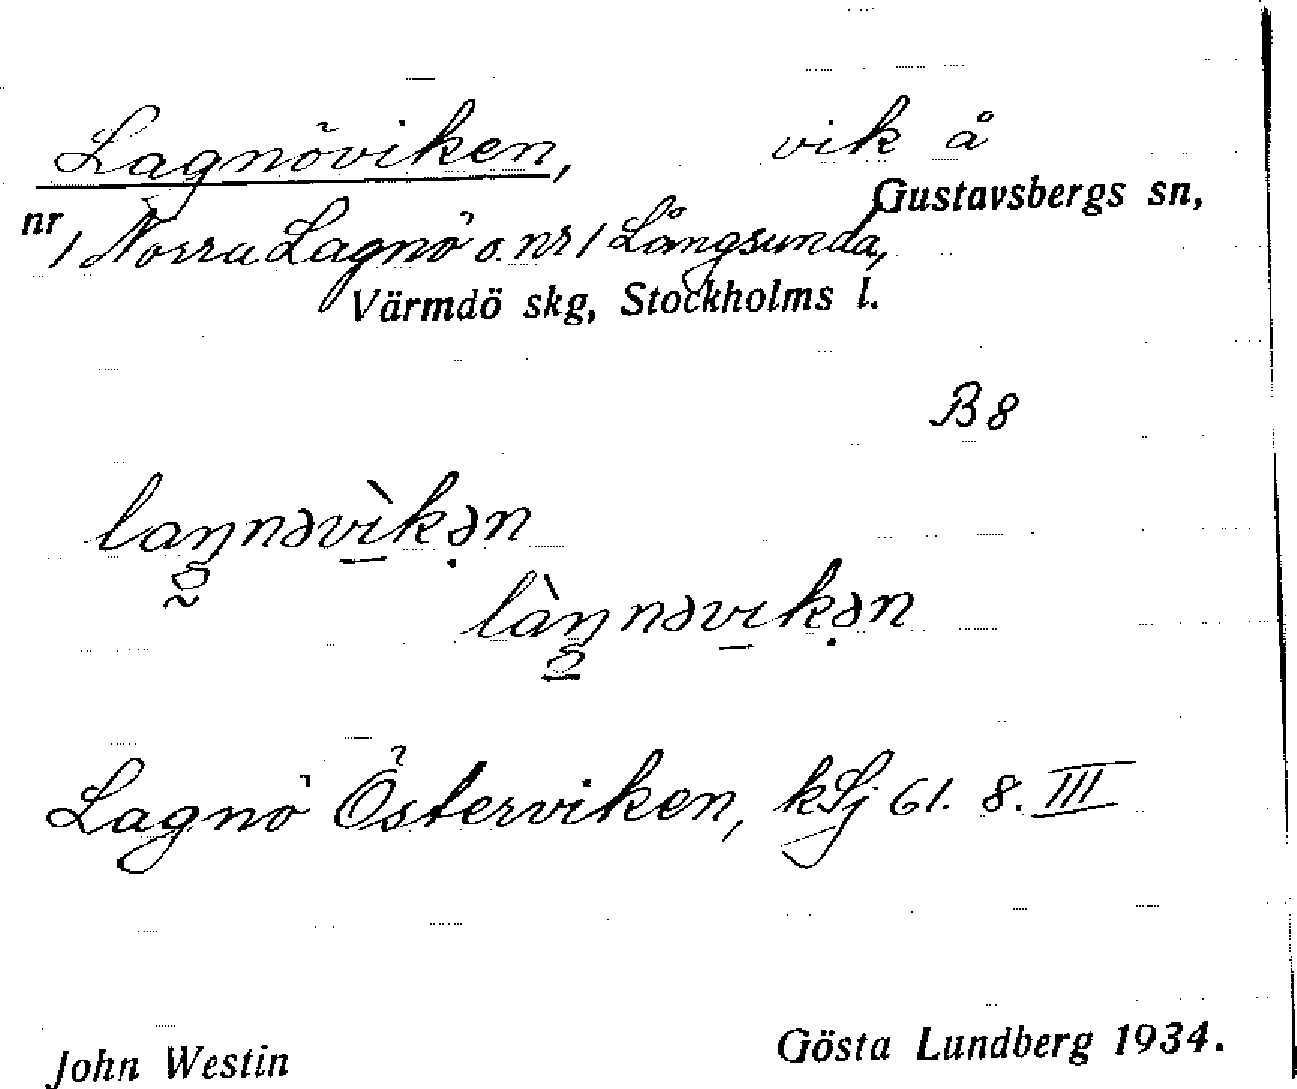 Lagnöviken, vik å
Gustavsbergs sn,
nr 1 Norra Lagnö o. nr 1 Långsunda,
Värmdö skg, Stockholms l.
B 8
laŋnəvìkən
làŋnəvikən
Lagnö Österviken, kSj 61. 8. III
John Westin Gösta Lundberg 1934.